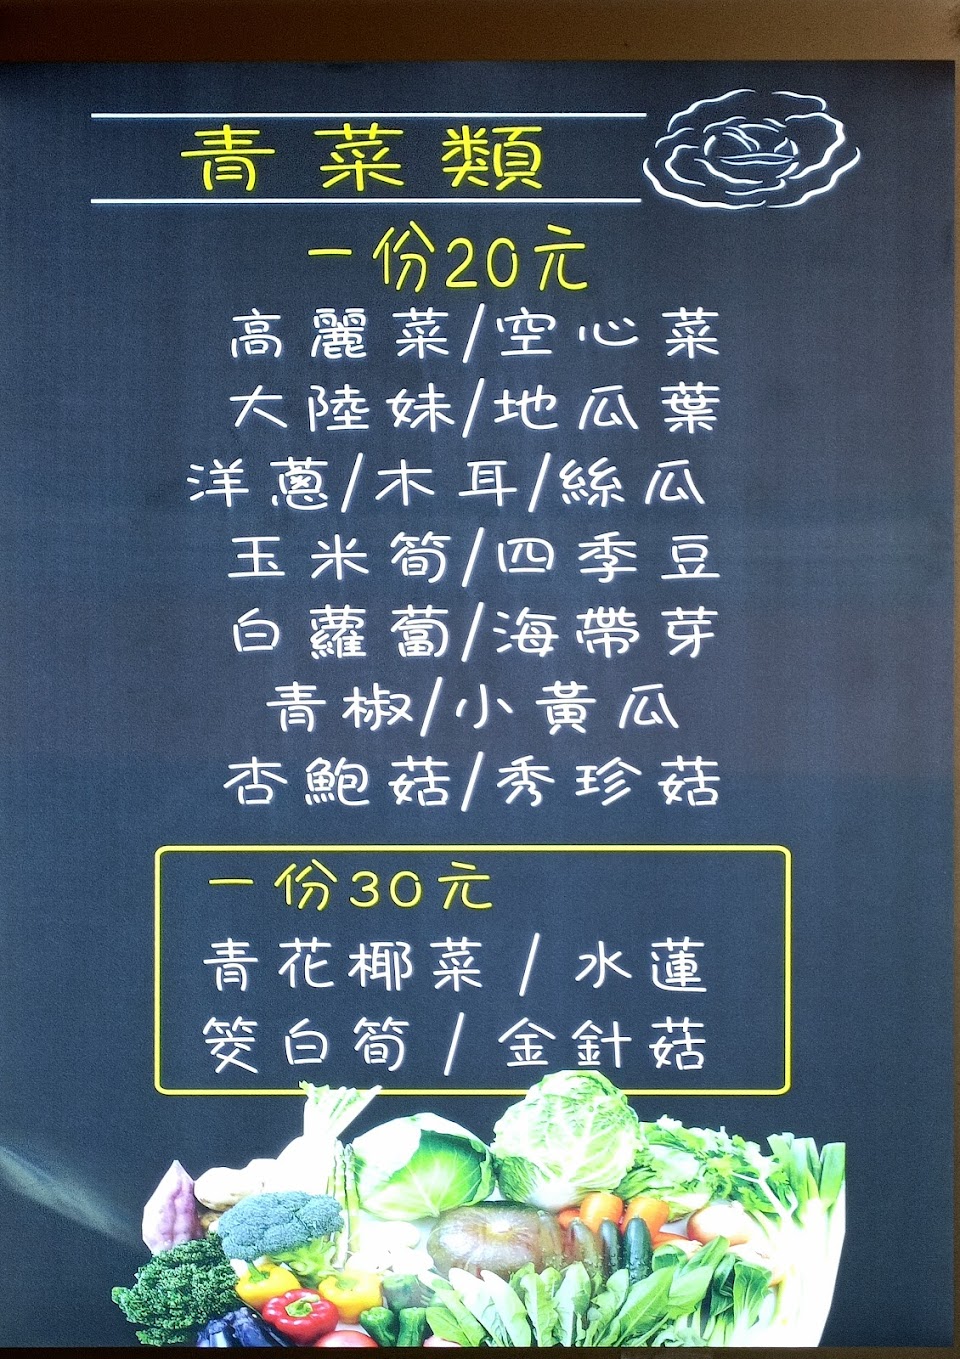 青菜類
一份20元
高麗菜/空心菜
大陸妹/地瓜葉
洋蔥/木耳/絲瓜
玉米筍/四季豆
白蘿蔔/海帶芽
青椒/小黃瓜
杏鮑菇/秀珍菇
一份30元
青花椰菜/水蓮
筊白筍/金針菇